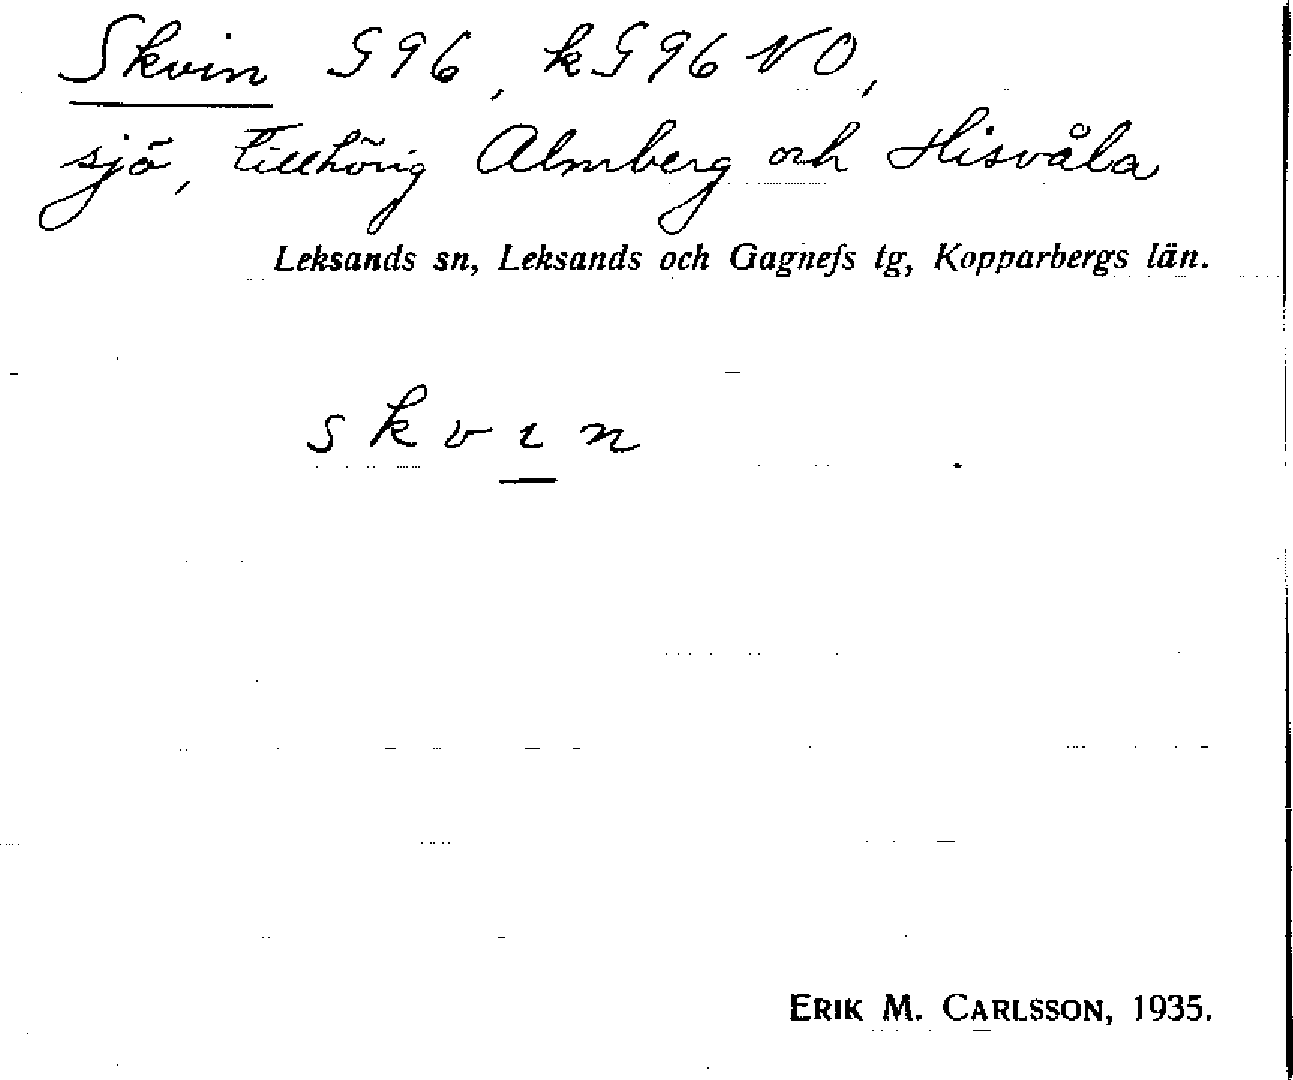 Skvin G96, kG96 NO,
sjö, tillhörig Almberg och Hisvåla
Leksands sn, Leksands och Gagnefs tg, Kopparbergs län.
skvın
ERIK M. CARLSSON, 1935.